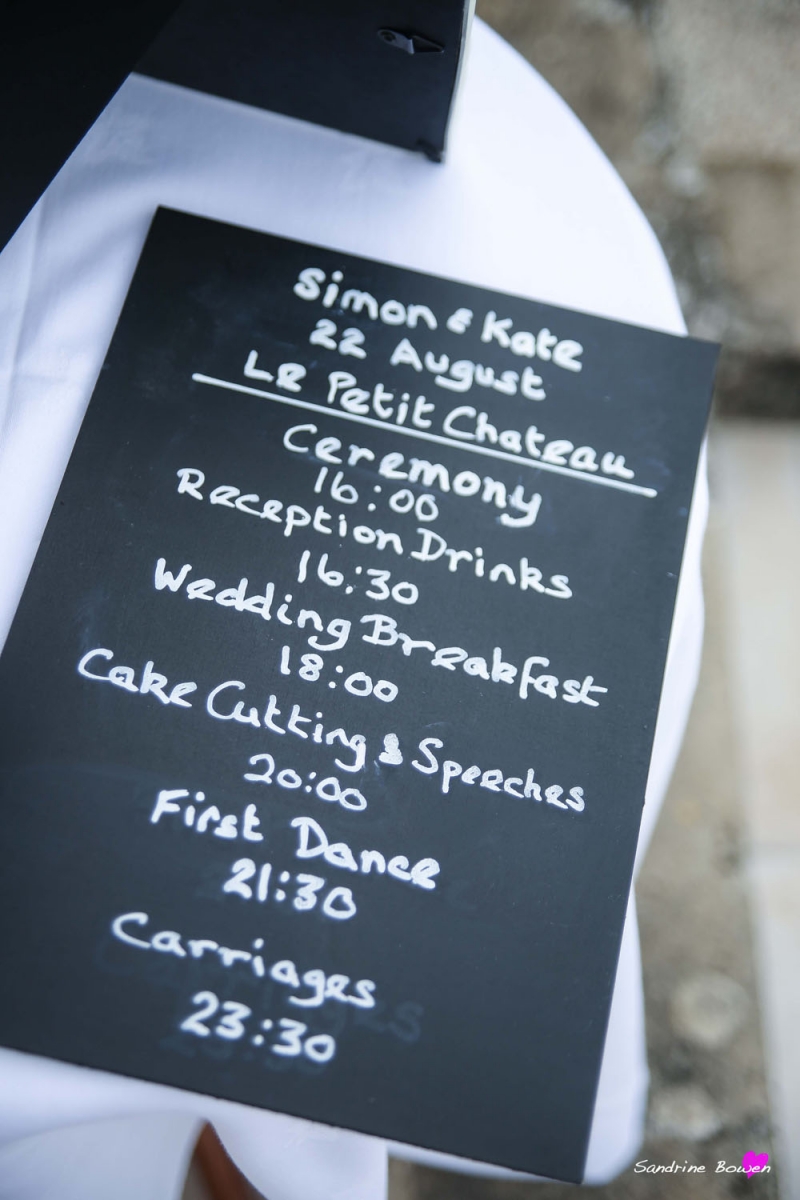 Simon & Kate
22 August
Le Petit Chateau
Ceremony
16:00
Reception Drinks
16:30
Wedding Breakfast
18:00
Cake Cutting & Speeches
20:00
First Dance
21:30
Carriages
23:30
Sandrine Bowen